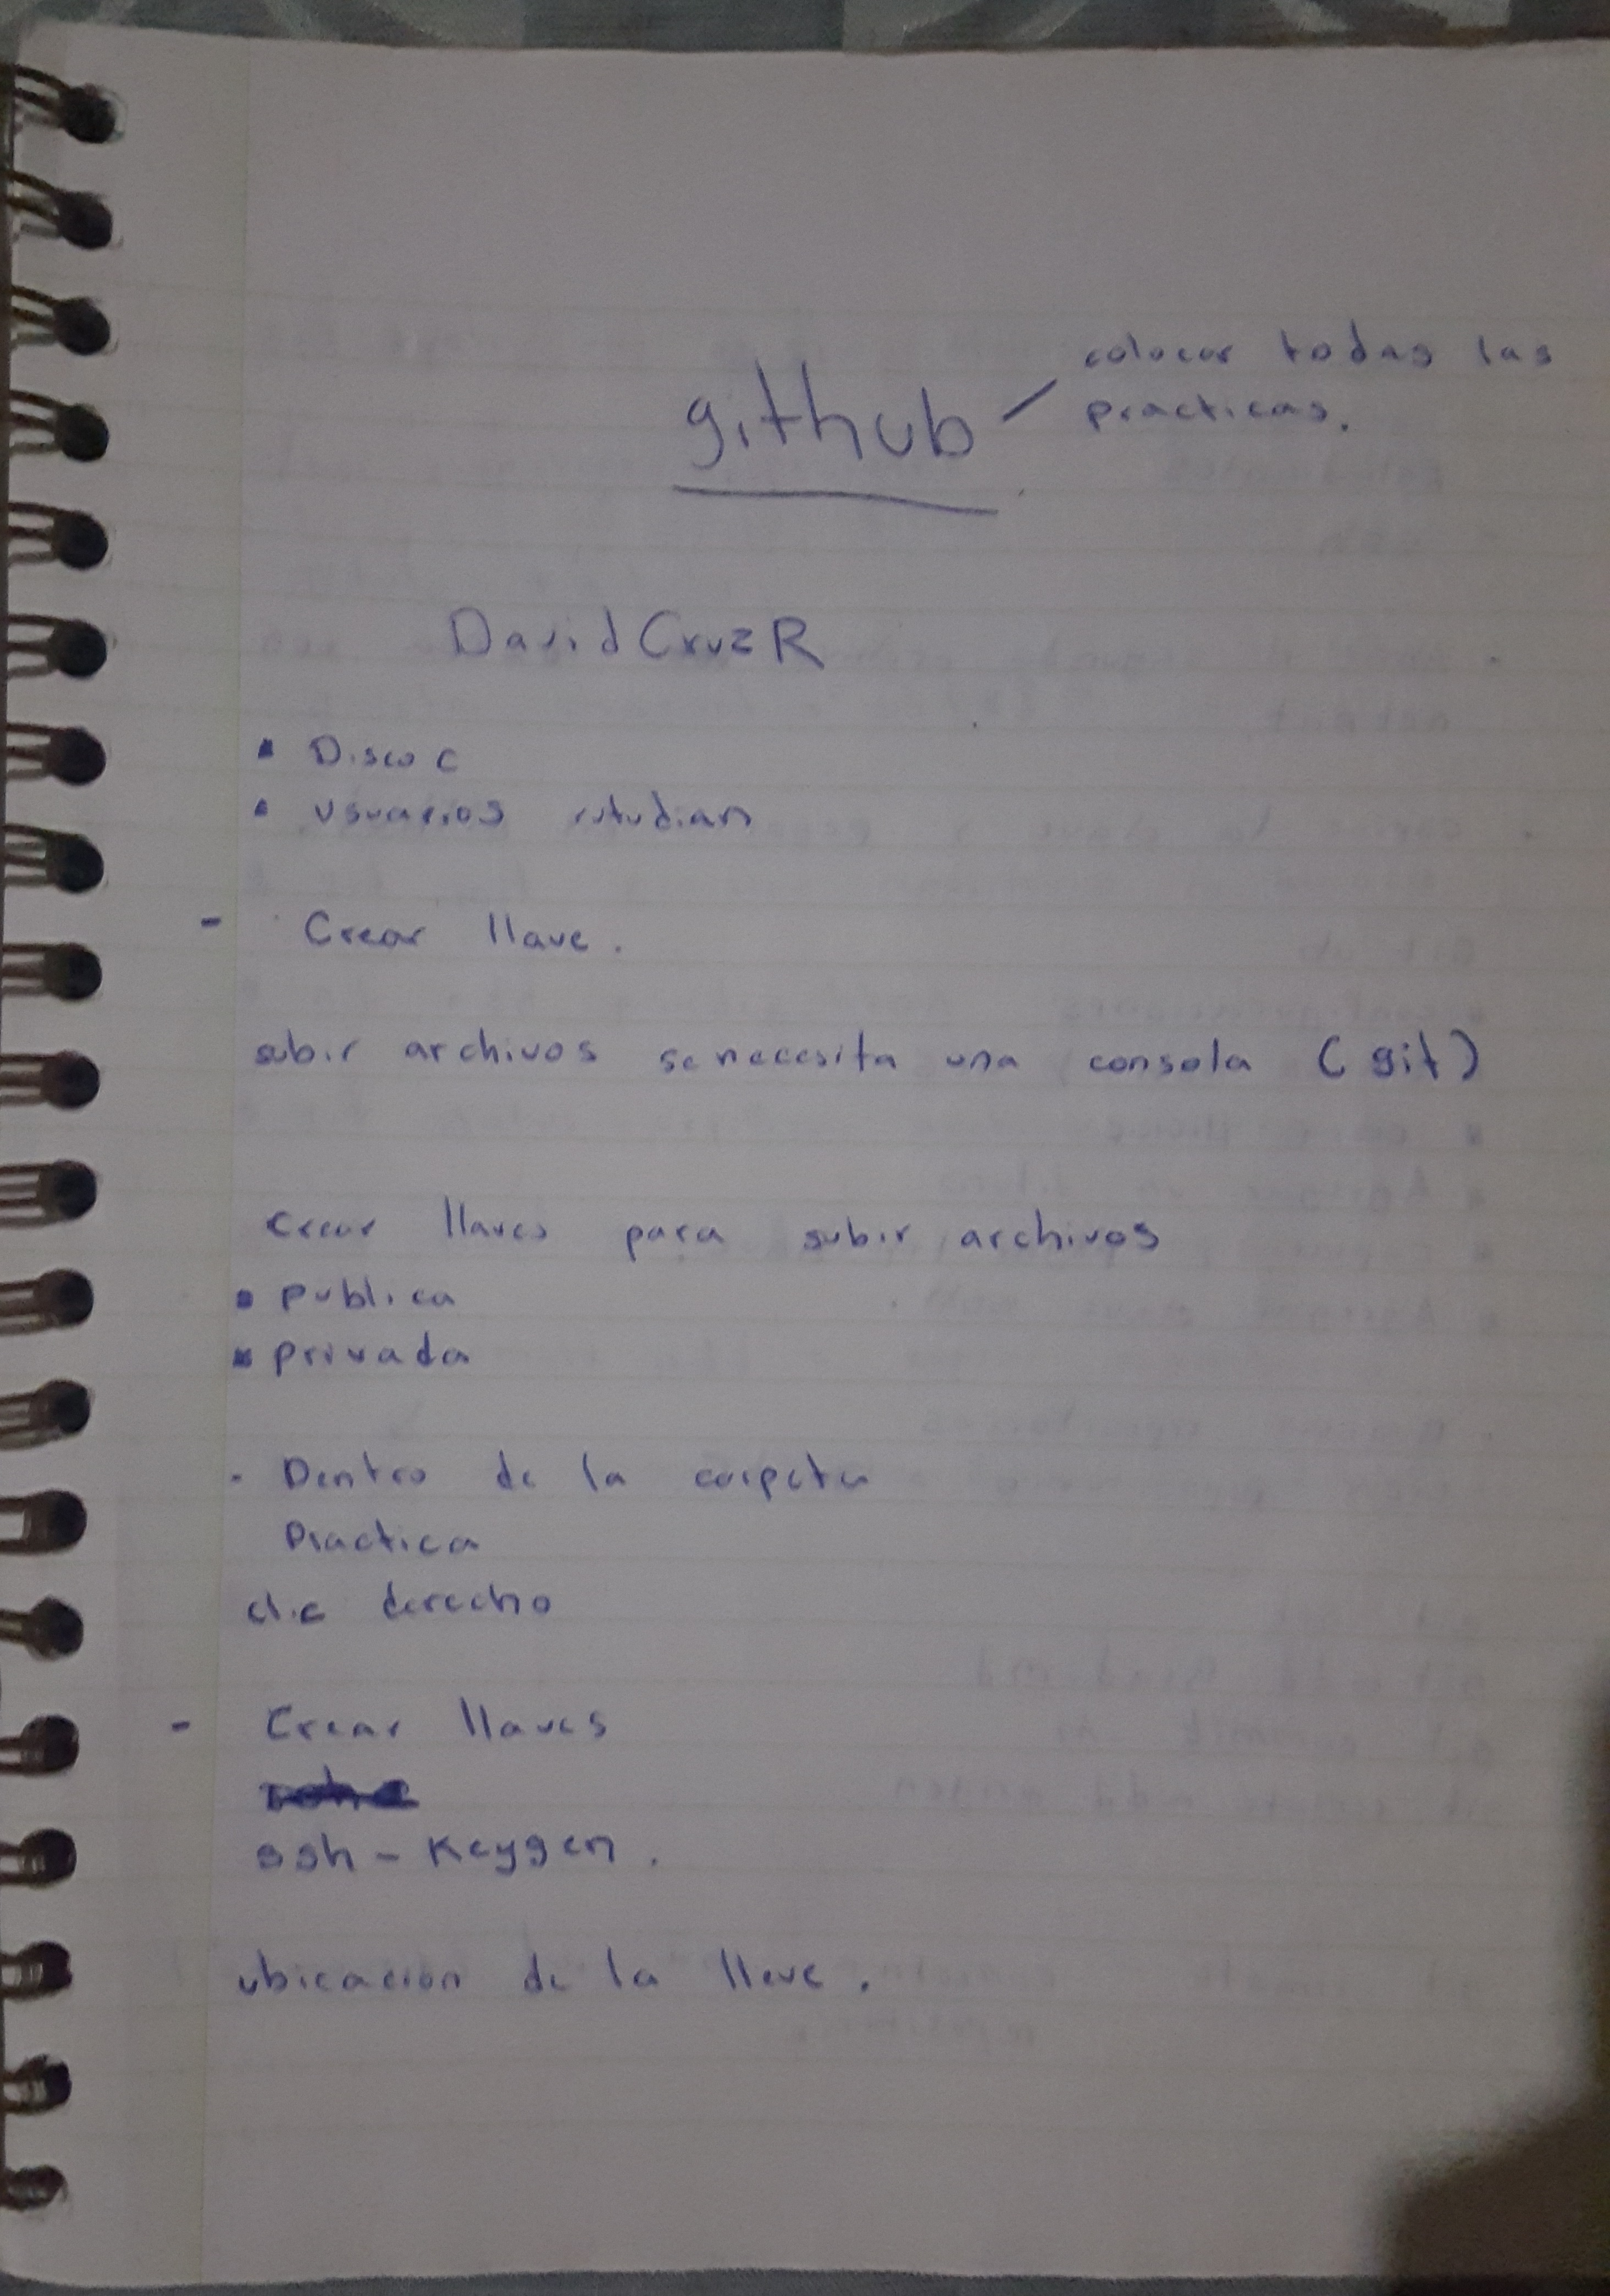 colocar todas las
github - practicas.
DavidCruzR
▪ Disco C
▪ usuarios estudian
- Crear llave.
subir archivos se necesita una consola (git)
crear llaves para subir archivos
▪ publica
▪ privada
- Dentro de la carpeta
Practica
clic derecho
- Crear llaves
ssh - Keygen.
ubicacion de la llave.